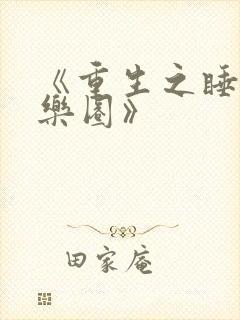 《重生之睡
樂園》
田家庵